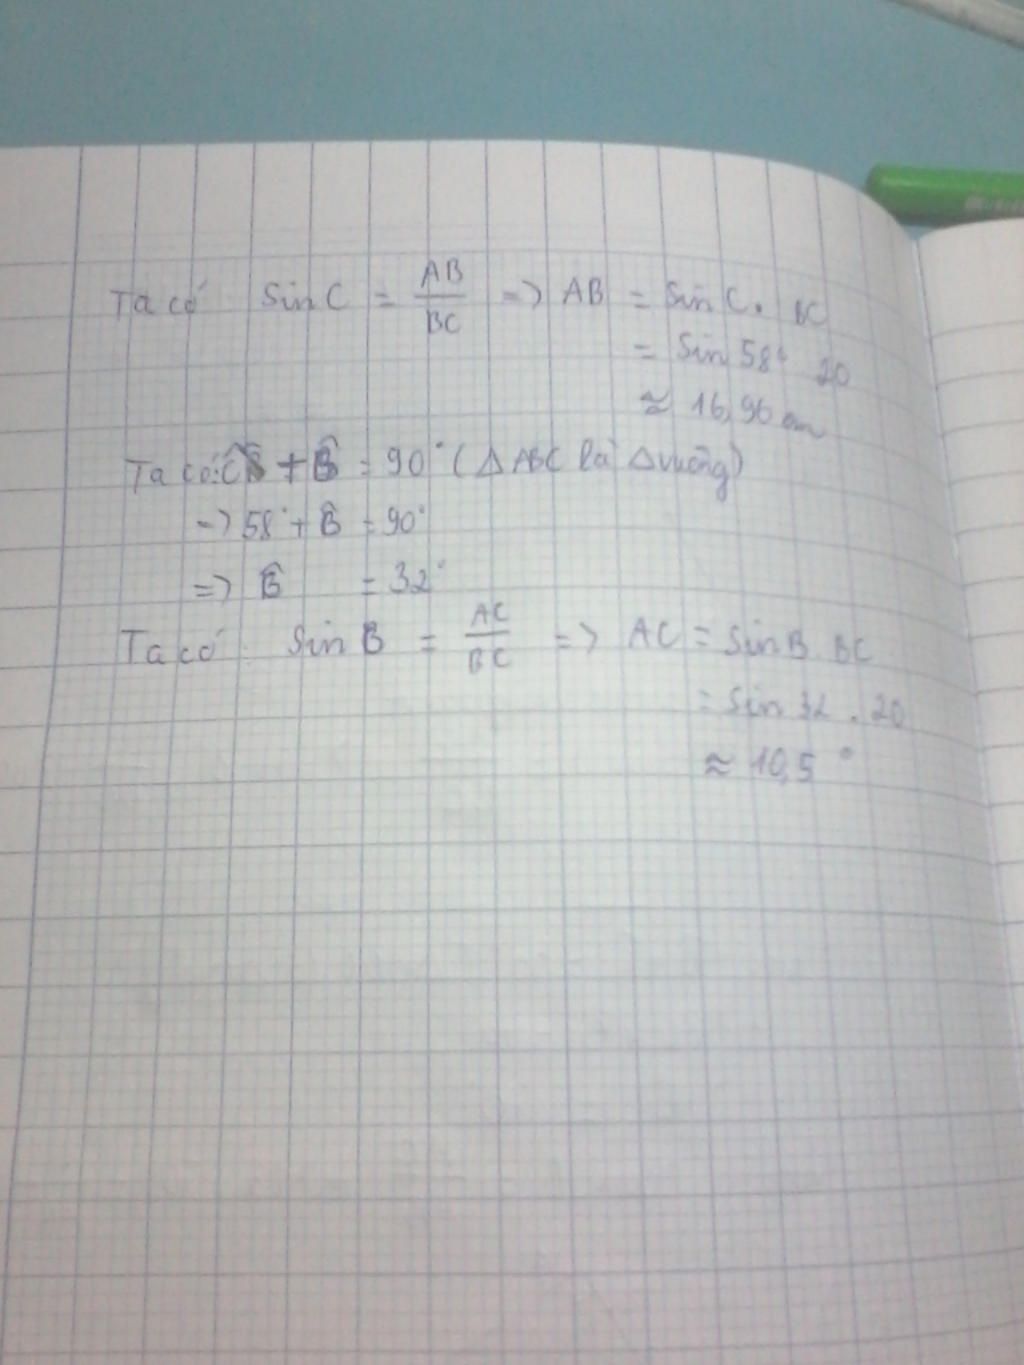 Ta có Sin C = AB/BC => AB = Sin C . BC
= Sin 58° 20
≈ 16,96 cm
Ta có: Ĉ + B̂ = 90° (Δ ABC là Δ vuông)
=> 58° + B̂ = 90°
=> B̂ = 32°
Ta có Sin B = AC/BC => AC = Sin B BC
= Sin 32 . 20
≈ 10,5 °